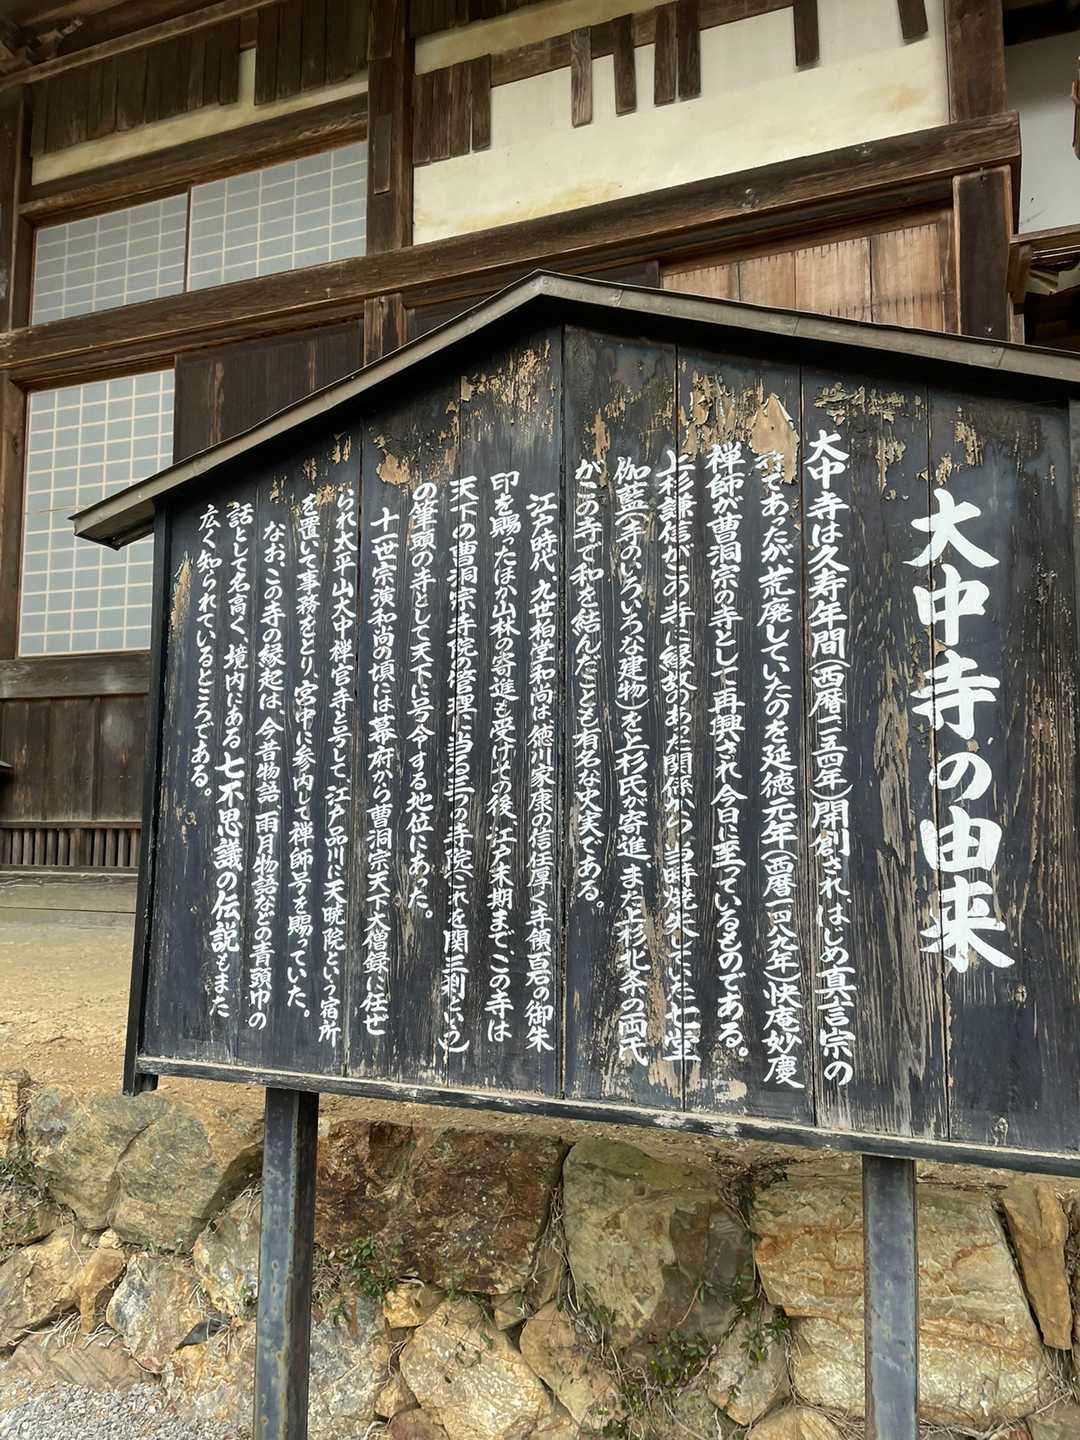 大中寺の由来
大中寺は久寿年間(西暦一一五四年)開創され、はじめ真言宗の
寺であったが荒廃していたのを延徳元年(西暦一四八九年)快庵妙慶
禅師が曹洞宗の寺として再興され今日に至っているものである。
上杉謙信がこの寺に縁故のあった関係から当時焼失していた七堂
伽藍(寺のいろいろな建物)を上杉氏が寄進、また上杉北条の両氏
がこの寺で和を結んだことも有名な史実である。
江戸時代、九世柏堂和尚は、徳川家康の信任厚く寺領百石の御朱
印を賜ったほか山林の寄進も受けその後、江戸末期まで、この寺は
天下の曹洞宗寺院の管理に当る三つの寺院(これを関三刹という)
の筆頭の寺として天下に号令する地位にあった。
十一世宗演和尚の頃には幕府から曹洞宗天下大僧録に任ぜ
られ太平山大中禅官寺と号して、江戸品川に天暁院という宿所
を置いて事務をとり、宮中に参内して禅師号を賜っていた。
なお、この寺の縁起は、今昔物語、雨月物語などの青頭巾の
話として名高く、境内にある七不思議の伝説もまた
広く知られているところである。